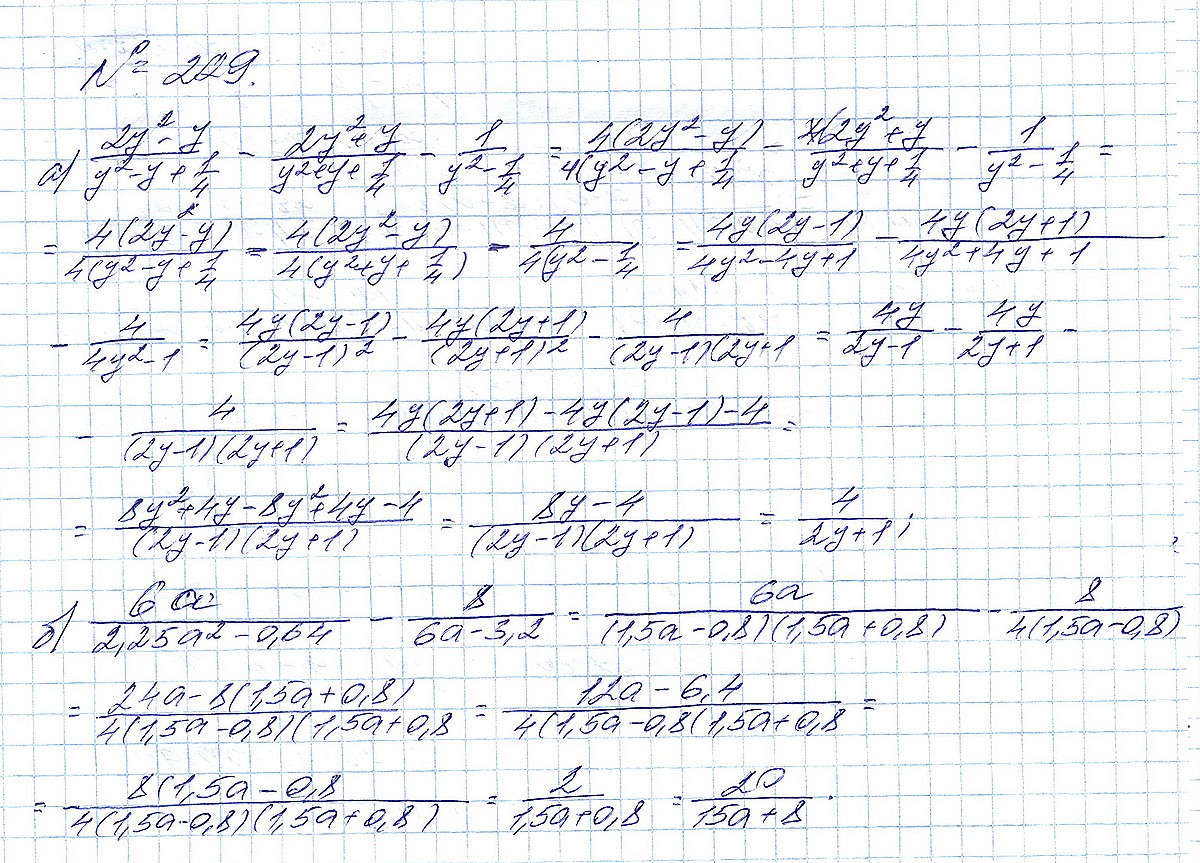 № 229.
а) (2y² - y)/(y² - y + 1/4) - (2y² + y)/(y² + y + 1/4) - 1/(y² - 1/4) = 4(2y² - y)/4(y² - y + 1/4 - 4(2y² + y/(y² + y + 1/4) - 1/(y² - 1/4) =
= 4(2y² - y)/4(y² - y + 1/4 - 4(2y² - y)/4(y² + y + 1/4) - 4/4(y² - 1/4 = 4y(2y - 1)/(4y² - 4y + 1) - 4y(2y + 1)/(4y² + 4y + 1)
- 4/(4y² - 1) = 4y(2y - 1)/(2y - 1)² - 4y(2y + 1)/(2y + 1)² - 4/(2y - 1)(2y + 1 = 4y/(2y - 1) - 4y/(2y + 1) -
- 4/(2y - 1)(2y + 1) = (4y(2y + 1) - 4y(2y - 1) - 4)/(2y - 1)(2y + 1) =
= (8y² + 4y - 8y² + 4y - 4)/(2y - 1)(2y + 1) = (8y - 4)/(2y - 1)(2y + 1) = 4/(2y + 1);
б) 6a/(2,25a² - 0,64) - 8/(6a - 3,2) = 6a/(1,5a - 0,8)(1,5a + 0,8) - 8/4(1,5a - 0,8)
= (24a - 8(1,5a + 0,8))/4(1,5a - 0,8)(1,5a + 0,8 = (12a - 6,4)/4(1,5a - 0,8(1,5a + 0,8 =
= 8(1,5a - 0,8/4(1,5a - 0,8)(1,5a + 0,8) = 2/(1,5a + 0,8) = 20/(15a + 8).